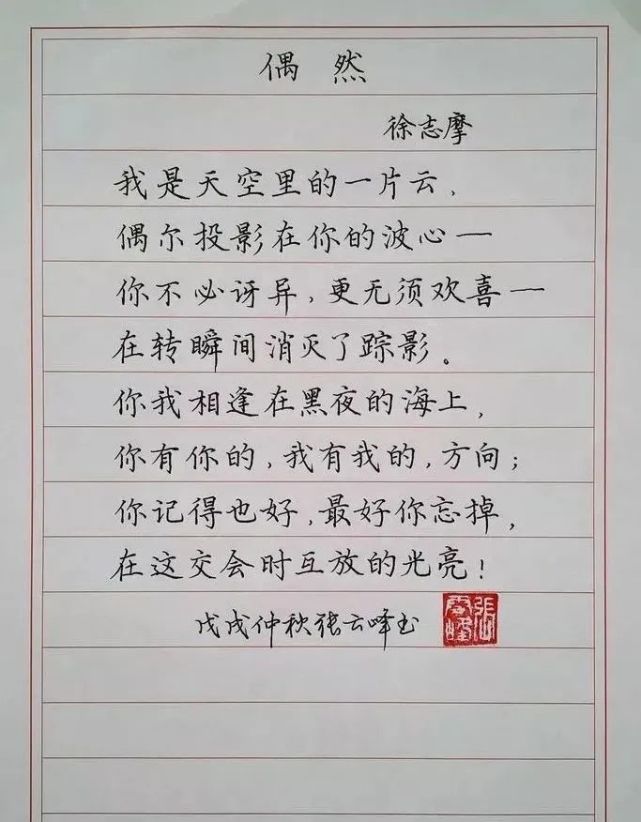 偶然
徐志摩
我是天空里的一片云、
偶尔投影在你的波心一
你不必讶异，更无须欢喜一
在转瞬间消灭了踪影。
你我相逢在黑夜的海上，
你有你的，我有我的，方向；
你记得也好，最好你忘掉，
在这交会时互放的光亮！
戊戌仲秋张云峰书
张云峰